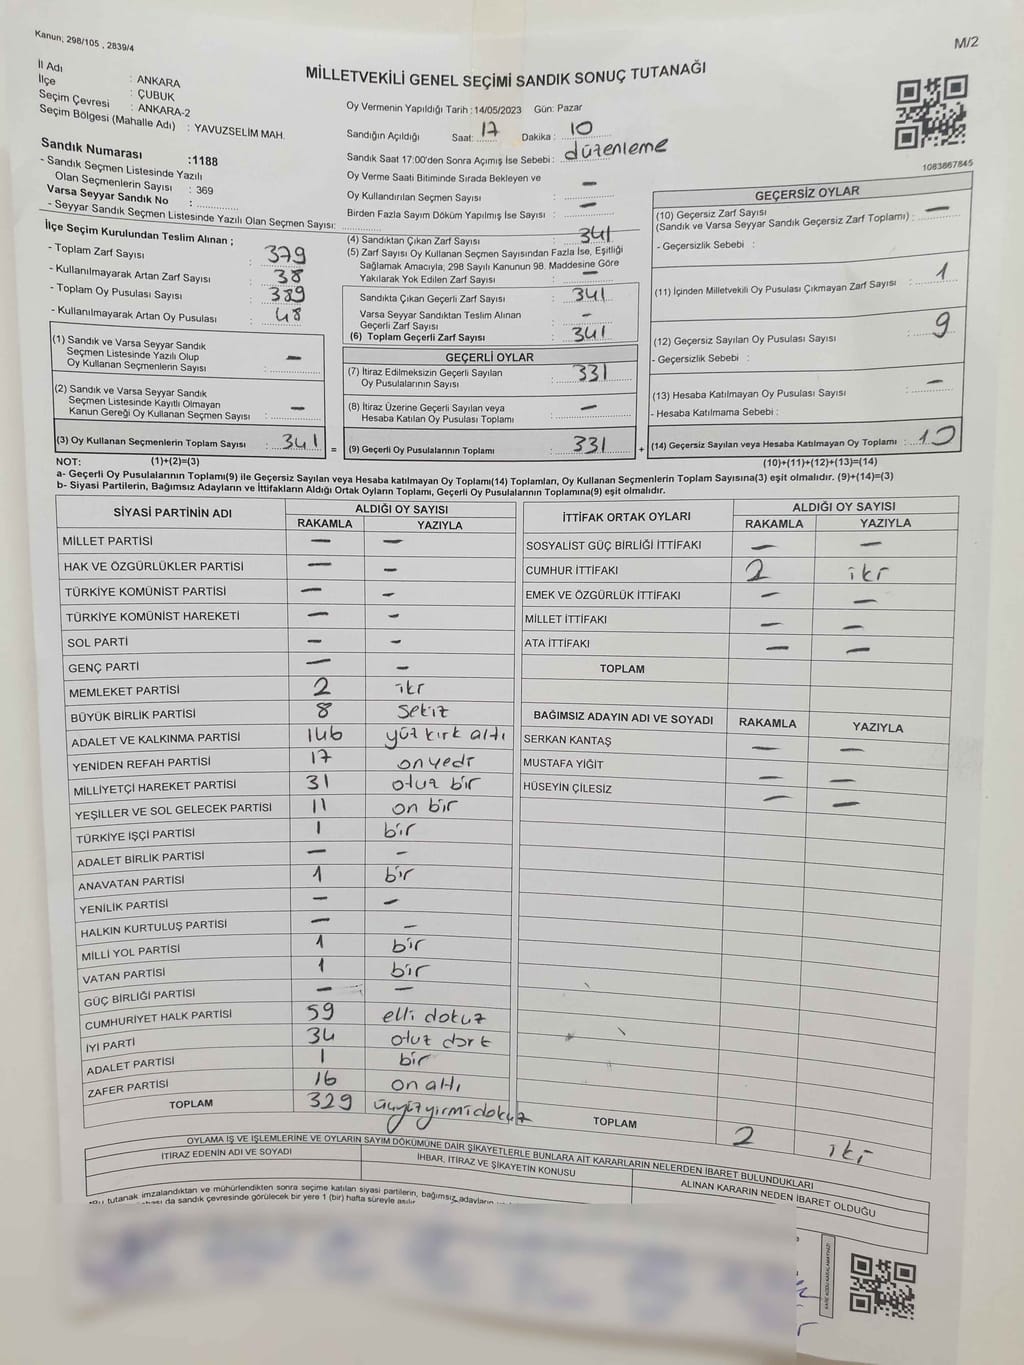 Kanun; 298/105 , 2839/4
M/2
MİLLETVEKİLİ GENEL SEÇİMİ SANDIK SONUÇ TUTANAĞI
İl Adı : ANKARA
İlçe : ÇUBUK
Seçim Çevresi : ANKARA-2
Seçim Bölgesi (Mahalle Adı) : YAVUZSELİM MAH.
Sandık Numarası :1188
- Sandık Seçmen Listesinde Yazılı
Olan Seçmenlerin Sayısı : 369
Varsa Seyyar Sandık No :
- Seyyar Sandık Seçmen Listesinde Yazılı Olan Seçmen Sayısı:
İlçe Seçim Kurulundan Teslim Alınan ;
- Toplam Zarf Sayısı : 379
- Kullanılmayarak Artan Zarf Sayısı : 38
- Toplam Oy Pusulası Sayısı : 389
- Kullanılmayarak Artan Oy Pusulası : 48
(1) Sandık ve Varsa Seyyar Sandık
Seçmen Listesinde Yazılı Olup
Oy Kullanan Seçmenlerin Sayısı : —
(2) Sandık ve Varsa Seyyar Sandık
Seçmen Listesinde Kayıtlı Olmayan
Kanun Gereği Oy Kullanan Seçmen Sayısı : —
(3) Oy Kullanan Seçmenlerin Toplam Sayısı : 341
(1)+(2)=(3)
Oy Vermenin Yapıldığı Tarih :14/05/2023 Gün: Pazar
Sandığın Açıldığı Saat: 17 Dakika : 10
Sandık Saat 17:00'den Sonra Açımış İse Sebebi : düzenleme
Oy Verme Saati Bitiminde Sırada Bekleyen ve
Oy Kullandırılan Seçmen Sayısı : —
Birden Fazla Sayım Döküm Yapılmış İse Sayısı : —
(4) Sandıktan Çıkan Zarf Sayısı : 341
(5) Zarf Sayısı Oy Kullanan Seçmen Sayısından Fazla İse, Eşitliği
Sağlamak Amacıyla; 298 Sayılı Kanunun 98. Maddesine Göre
Yakılarak Yok Edilen Zarf Sayısı : —
Sandıkta Çıkan Geçerli Zarf Sayısı : 341
Varsa Seyyar Sandıktan Teslim Alınan
Geçerli Zarf Sayısı : -
(6) Toplam Geçerli Zarf Sayısı : 341
GEÇERLİ OYLAR
(7) İtiraz Edilmeksizin Geçerli Sayılan
Oy Pusulalarının Sayısı : 331
(8) İtiraz Üzerine Geçerli Sayılan veya
Hesaba Katılan Oy Pusulası Toplamı : —
= (9) Geçerli Oy Pusulalarının Toplamı : 331 +
1083867845
GEÇERSİZ OYLAR
(10) Geçersiz Zarf Sayısı
(Sandık ve Varsa Seyyar Sandık Geçersiz Zarf Toplamı) : —
- Geçersizlik Sebebi :
(11) İçinden Milletvekili Oy Pusulası Çıkmayan Zarf Sayısı : 1
(12) Geçersiz Sayılan Oy Pusulası Sayısı : 9
- Geçersizlik Sebebi :
(13) Hesaba Katılmayan Oy Pusulası Sayısı : —
- Hesaba Katılmama Sebebi :
(14) Geçersiz Sayılan veya Hesaba Katılmayan Oy Toplamı : 10
(10)+(11)+(12)+(13)=(14)
NOT:
a- Geçerli Oy Pusulalarının Toplamı(9) ile Geçersiz Sayılan veya Hesaba katılmayan Oy Toplamı(14) Toplamları, Oy Kullanan Seçmenlerin Toplam Sayısına(3) eşit olmalıdır. (9)+(14)=(3)
b- Siyasi Partilerin, Bağımsız Adayların ve İttifakların Aldığı Ortak Oyların Toplamı, Geçerli Oy Pusulalarının Toplamına(9) eşit olmalıdır.
SİYASİ PARTİNİN ADI ALDIĞI OY SAYISI
RAKAMLA YAZIYLA
MİLLET PARTİSİ — —
HAK VE ÖZGÜRLÜKLER PARTİSİ — —
TÜRKİYE KOMÜNİST PARTİSİ — —
TÜRKİYE KOMÜNİST HAREKETİ — —
SOL PARTİ — —
GENÇ PARTİ — —
MEMLEKET PARTİSİ 2 iki
BÜYÜK BİRLİK PARTİSİ 8 sekiz
ADALET VE KALKINMA PARTİSİ 146 yüz kırk altı
YENİDEN REFAH PARTİSİ 17 on yedi
MİLLİYETÇİ HAREKET PARTİSİ 31 otuz bir
YEŞİLLER VE SOL GELECEK PARTİSİ 11 on bir
TÜRKİYE İŞÇİ PARTİSİ 1 bir
ADALET BİRLİK PARTİSİ — —
ANAVATAN PARTİSİ 1 bir
YENİLİK PARTİSİ — —
HALKIN KURTULUŞ PARTİSİ — —
MİLLİ YOL PARTİSİ 1 bir
VATAN PARTİSİ 1 bir
GÜÇ BİRLİĞİ PARTİSİ — —
CUMHURİYET HALK PARTİSİ 59 elli dokuz
İYİ PARTİ 34 otuz dört
ADALET PARTİSİ 1 bir
ZAFER PARTİSİ 16 on altı
TOPLAM 329 üçyüzyirmidokuz
İTTİFAK ORTAK OYLARI ALDIĞI OY SAYISI
RAKAMLA YAZIYLA
SOSYALİST GÜÇ BİRLİĞİ İTTİFAKI — —
CUMHUR İTTİFAKI 2 iki
EMEK VE ÖZGÜRLÜK İTTİFAKI — —
MİLLET İTTİFAKI — —
ATA İTTİFAKI — —
TOPLAM
BAĞIMSIZ ADAYIN ADI VE SOYADI RAKAMLA YAZIYLA
SERKAN KANTAŞ — —
MUSTAFA YİĞİT — —
HÜSEYİN ÇİLESİZ — —
TOPLAM 2 iki
OYLAMA İŞ VE İŞLEMLERİNE VE OYLARIN SAYIM DÖKÜMÜNE DAİR ŞİKAYETLERLE BUNLARA AİT KARARLARIN NELERDEN İBARET BULUNDUKLARI
İTİRAZ EDENİN ADI VE SOYADI İHBAR, İTİRAZ VE ŞİKAYETİN KONUSU ALINAN KARARIN NEDEN İBARET OLDUĞU
tutanak imzalandıktan ve mühürlendikten sonra seçime katılan siyasi partilerin, bağımsız adayların
da sandık çevresinde görülecek bir yere 1 (bir) hafta süreyle asılır.